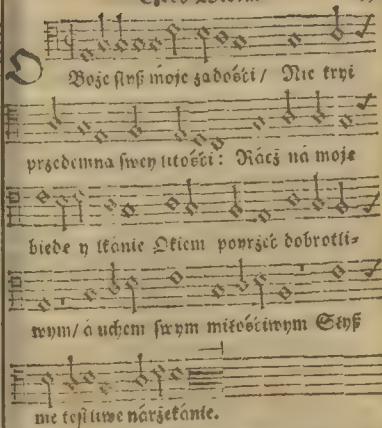 O
Boże słyß moje żadości / Nie kryi
przedemna swey litości: Rácż ná moje
biede y łkánie Okiem poyrżeć dobrotli-
wym / á uchem swym miłościwym Słyß
me teſkliwe nárżekánie.